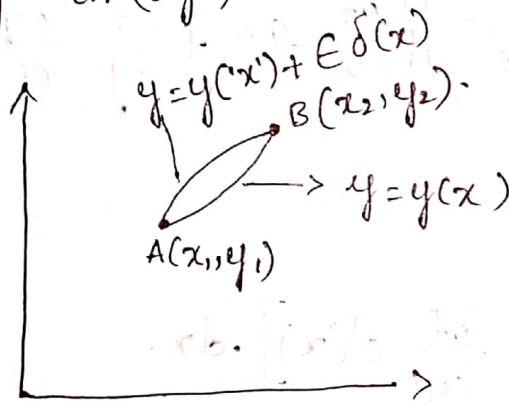 y=y(x)+ ∈ δ(x)
B(x₂,y₂).
y=y(x)
A(x₁,y₁)